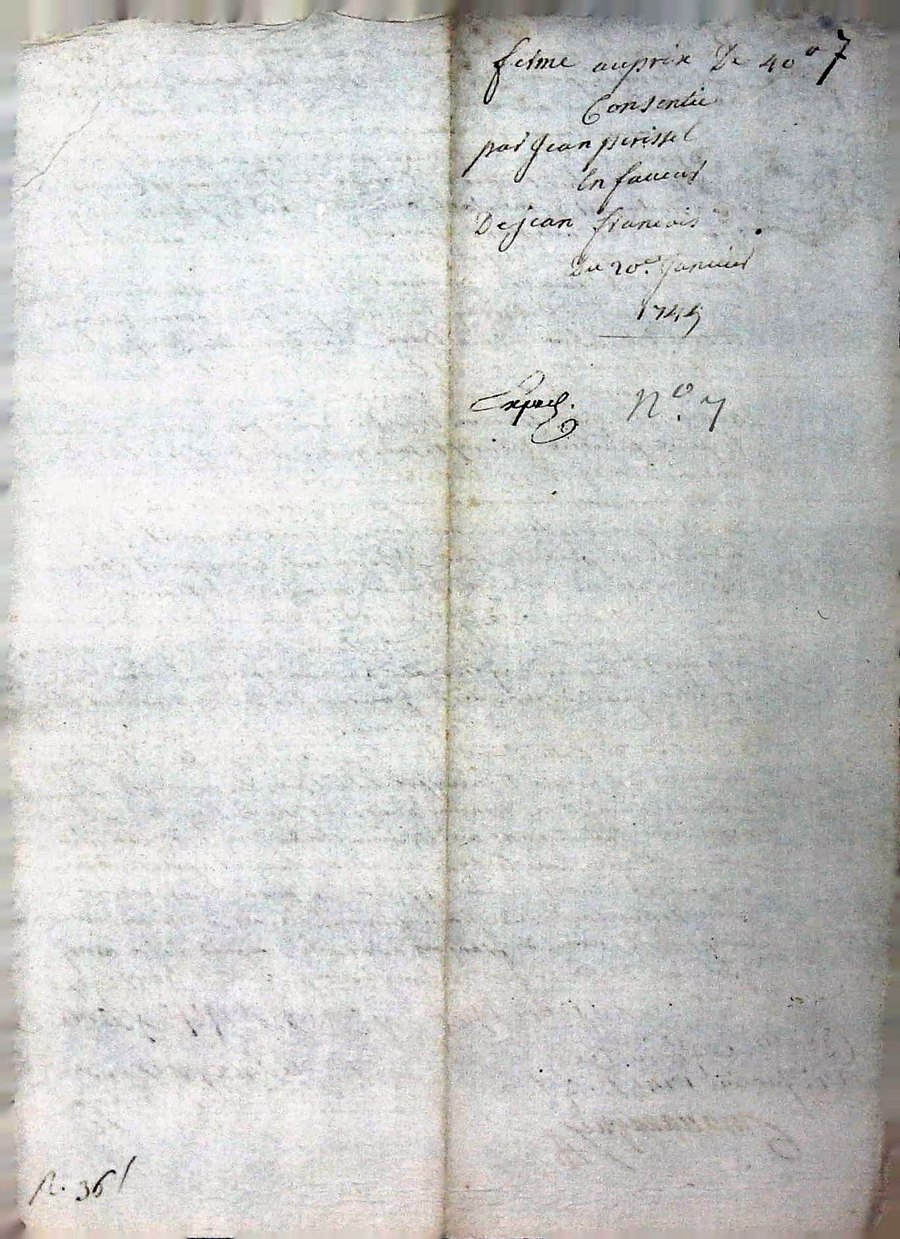 ferme au prix De 40ᵗᵗ 7
Consentie
par Jean perissel
En faueur
De jean francois
du 20ᵉ Januier
1745
Exped.
Nº. 7
R. 36ˡ